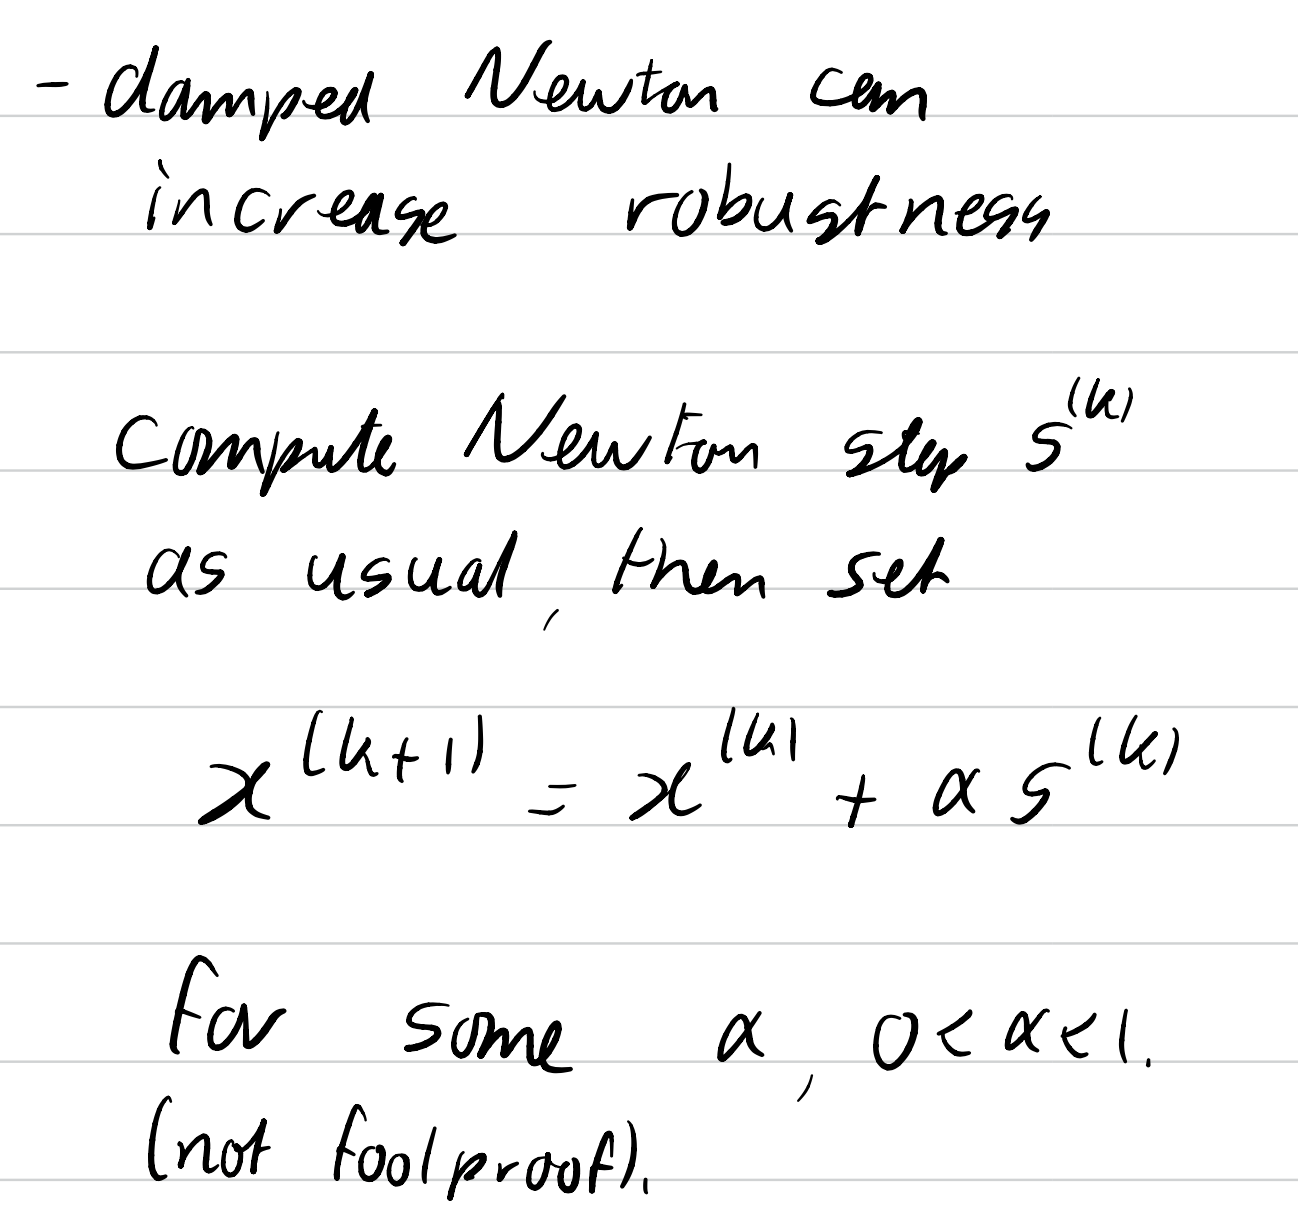 - damped Newton can
increase robustness
Compute Newton step s^(k)
as usual, then set
x^(k+1) = x^(k) + α s^(k)
for some α, 0 < α < 1.
(not foolproof).